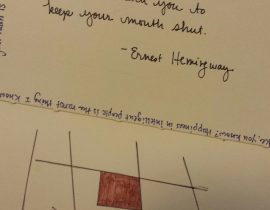 you to
keep your mouth shut.
- Ernest Hemingway
, you know? Happiness in intelligent people is the rarest thing I know